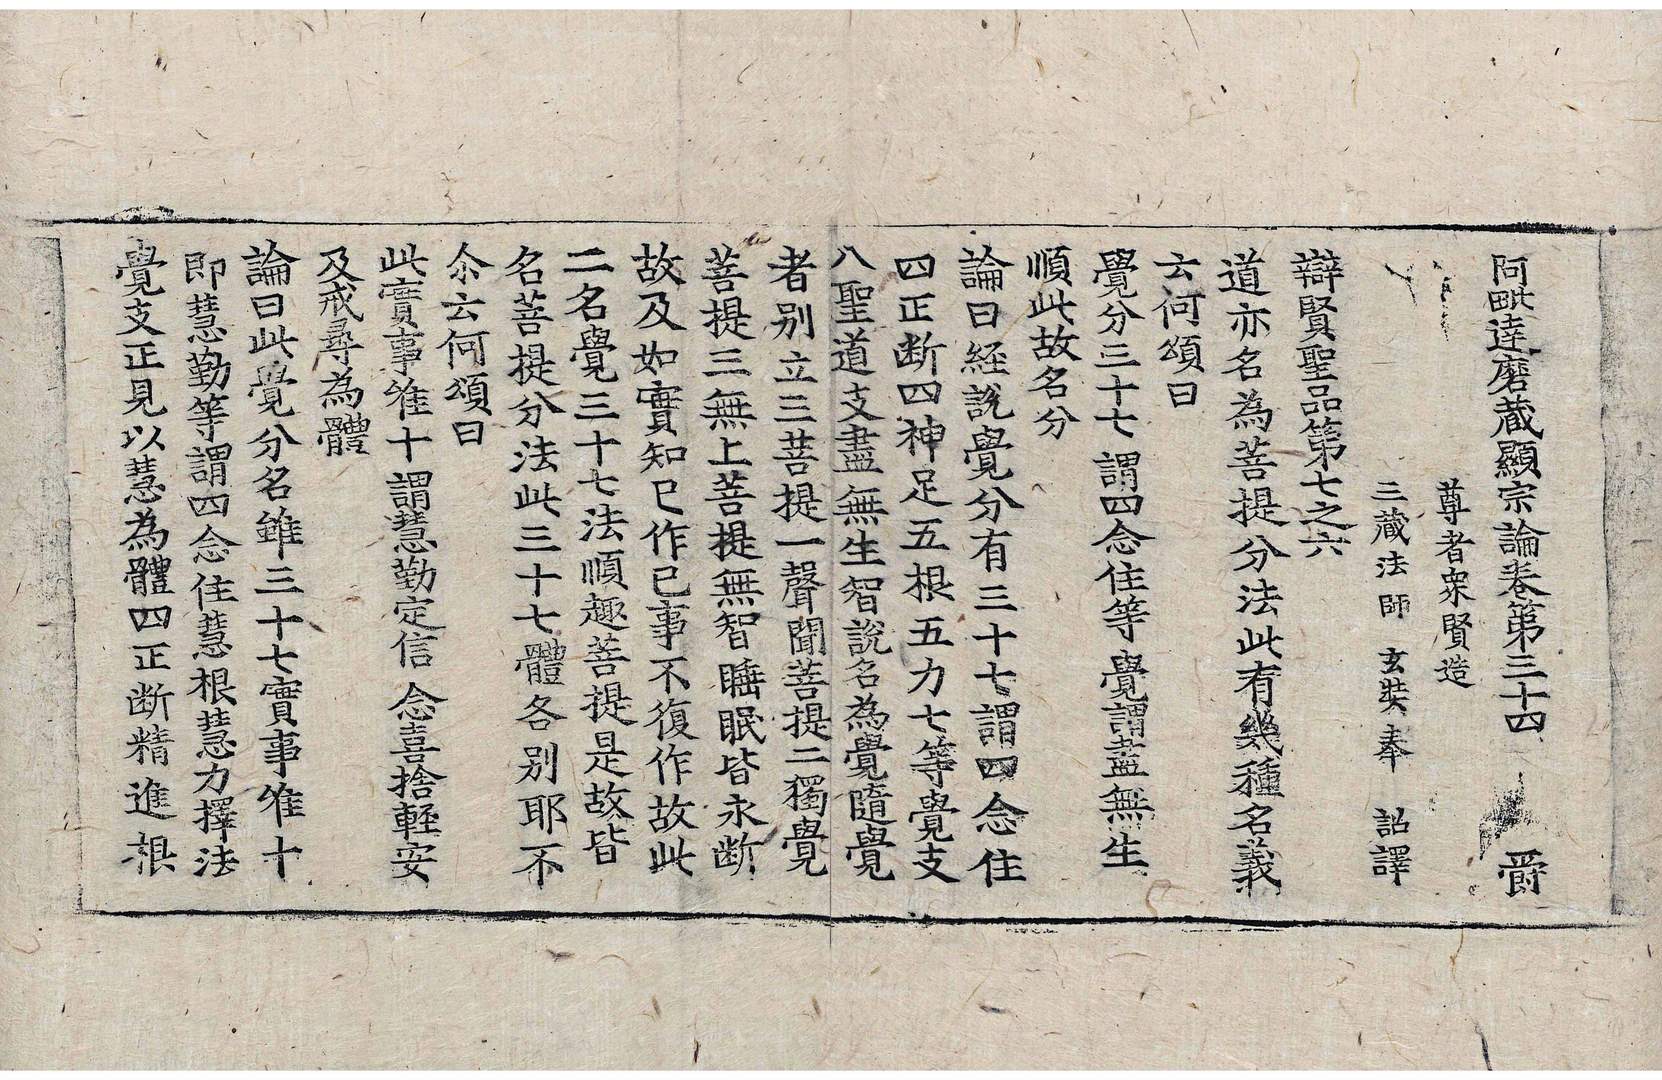 阿毗達磨藏顯宗論卷第三十四 爵
尊者衆賢造
三藏法師 玄奘奉 詔譯
辯賢聖品第七之六
道亦名為菩提分法此有幾種名義
云何頌曰
覺分三十七 謂四念住等 覺謂盡無生
順此故名分
論曰經說覺分有三十七謂四念住
四正断四神足五根五力七等覺支
八聖道支盡無生智說名為覺隨覺
者別立三菩提一聲聞菩提二獨覺
菩提三無上菩提無智睡眠皆永断
故及如實知已作已事不復作故此
二名覺三十七法順趣菩提是故皆
名菩提分法此三十七體各別耶不
尒云何頌曰
此實事唯十 謂慧勤定信 念喜捨輕安
及戒尋為體
論曰此覺分名雖三十七實事唯十
即慧勤等謂四念住慧根慧力擇法
覺支正見以慧為體四正断精進根